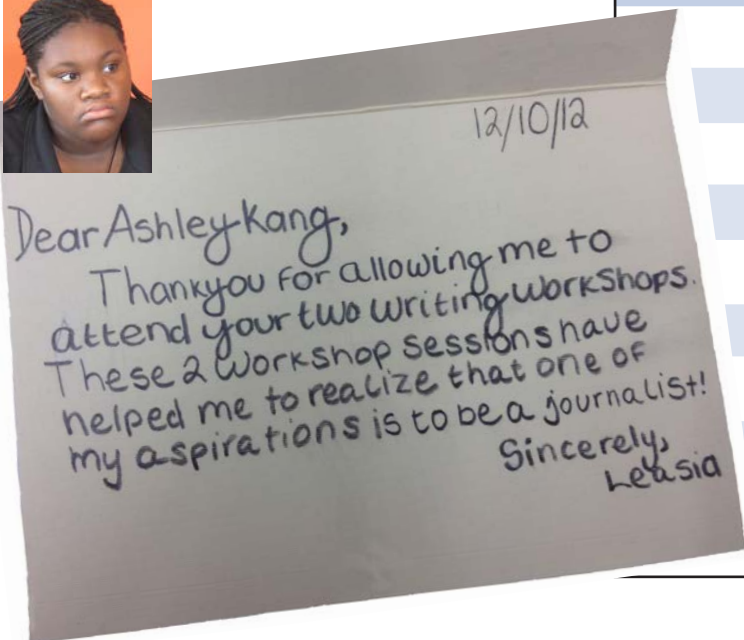 12/10/12
Dear Ashley Kang,
Thankyou for allowing me to
attend your two writing workshops.
These 2 workshop sessions have
helped me to realize that one of
my aspirations is to be a journalist!
Sincerely,
Leasia